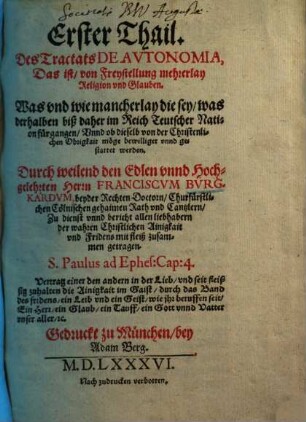 Societatis
Erster Thail.
Des Tractats DE AVTONOMIA,
Das ist/ von Freystellung mehrerlay
Religion vnd Glauben.
Was vnd wie mancherlay die sey/ was
derhalben biß daher im Reich Teutscher Nati-
on fürgangen/ Vnnd ob dieselb von der Christenli-
chen Obrigkait möge bewilliget vnnd ge-
stattet werden.
Durch weilend den Edlen vnnd Hoch-
gelehrten Herrn FRANCISCVM BVRG-
KARDVM, beyder Rechten Doctorn/ Churfürstli-
chen Cölnischen gehaimen Rath vnd Cantzlern/
Zu dienst vnnd bericht allen liebhabern
der wahren Christlichen Ainigkait
vnd Fridens mit fleiß zusam-
men getragen.
S. Paulus ad Ephes: Cap: 4.
Vertrag einer den andern in der Lieb/ vnd seit fleis-
sig zuhalten die Ainigkait im Gaist/ durch das Band
des fridens/ ein Leib vnd ein Geist/ wie jhr beruffen seit/
Ein Herr/ ein Glaub/ ein Tauff/ ein Gott vnnd Vatter
vnser aller/ ꝛc.
Gedruckt zu München/ bey
Adam Berg.
M.D.LXXXVI.
Nach zudrucken verbotten.